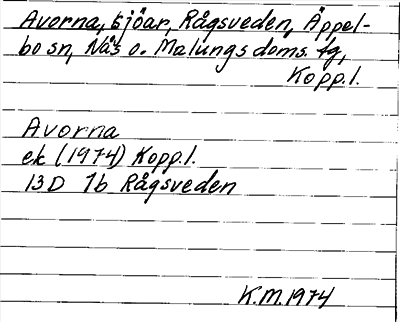 Avorna, sjöar, Rågsveden, Äppel-
bo sn, Nås o. Malungs doms. tg,
Kopp.l.
Avorna
ek (1974) Kopp.l.
13D 7b Rågsveden
K.M. 1974